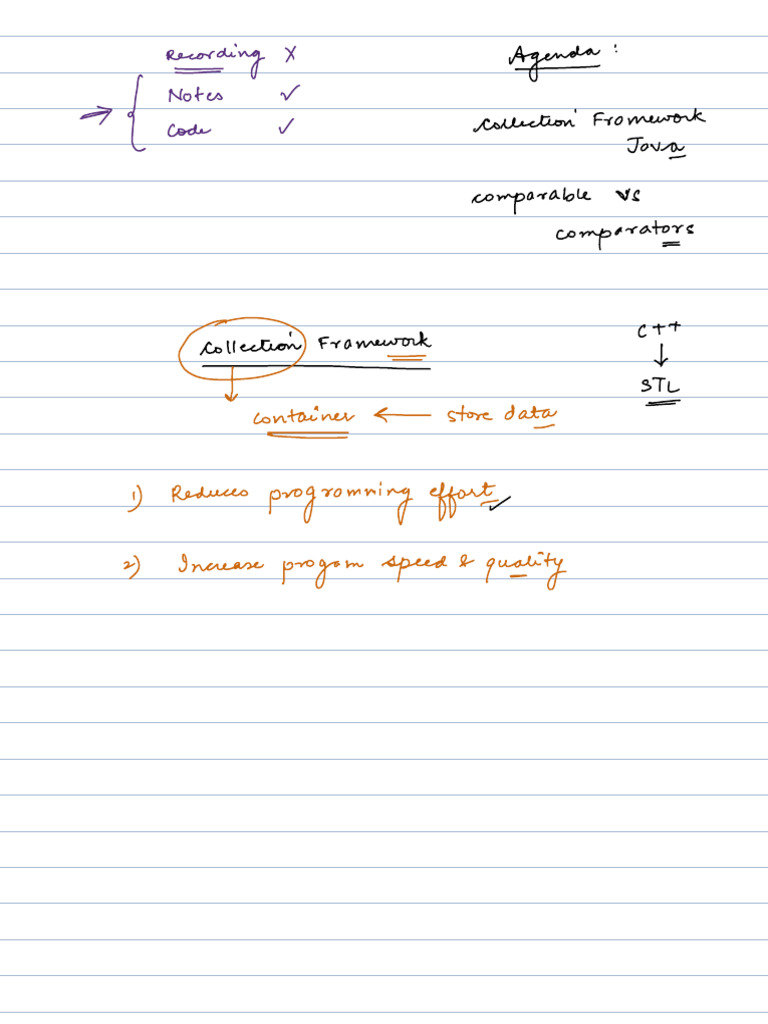 Recording X
Notes ✓
Code ✓
Agenda :
Collection Framework
Java
Comparable vs
Comparators
Collection Framework
Container ← store data
C++
↓
STL
1) Reduces progromning effort ✓
2) Increase progam speed & quality